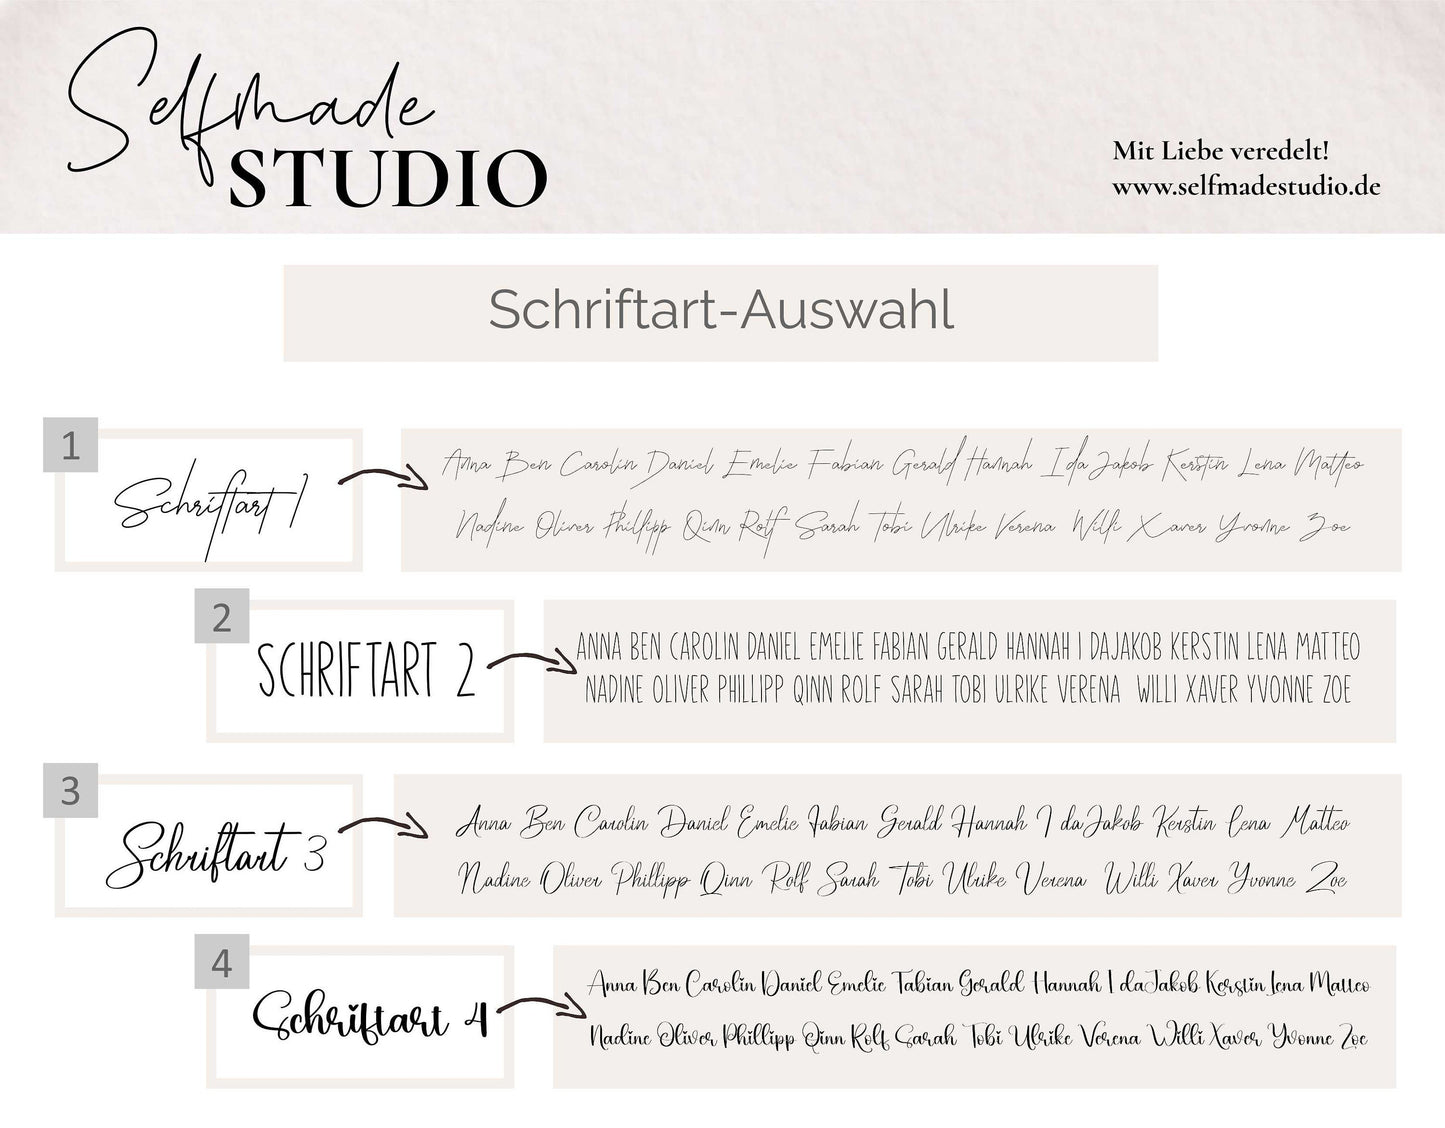 Selfmade
STUDIO
Mit Liebe veredelt!
www.selfmadestudio.de
Schriftart-Auswahl
1
Schriftart 1
Anna Ben Carolin Daniel Emelie Fabian Gerald Hannah I da Jakob Kerstin Lena Matteo
Nadine Oliver Phillipp Qinn Rolf Sarah Tobi Ulrike Verena Willi Xaver Yvonne Zoe
2
SCHRIFTART 2
ANNA BEN CAROLIN DANIEL EMELIE FABIAN GERALD HANNAH I DAJAKOB KERSTIN LENA MATTEO
NADINE OLIVER PHILLIPP QINN ROLF SARAH TOBI ULRIKE VERENA WILLI XAVER YVONNE ZOE
3
Schriftart 3
Anna Ben Carolin Daniel Emelie Fabian Gerald Hannah I daJakob Kerstin Lena Matteo
Nadine Oliver Phillipp Qinn Rolf Sarah Tobi Ulrike Verena Willi Xaver Yvonne Zoe
4
Schriftart 4
Anna Ben Carolin Daniel Emelie Fabian Gerald Hannah I daJakob Kerstin Lena Matteo
Nadine Oliver Phillipp Qinn Rolf Sarah Tobi Ulrike Verena Willi Xaver Yvonne Zoe